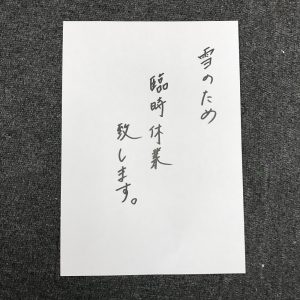 雪のため
臨時休業
致します。